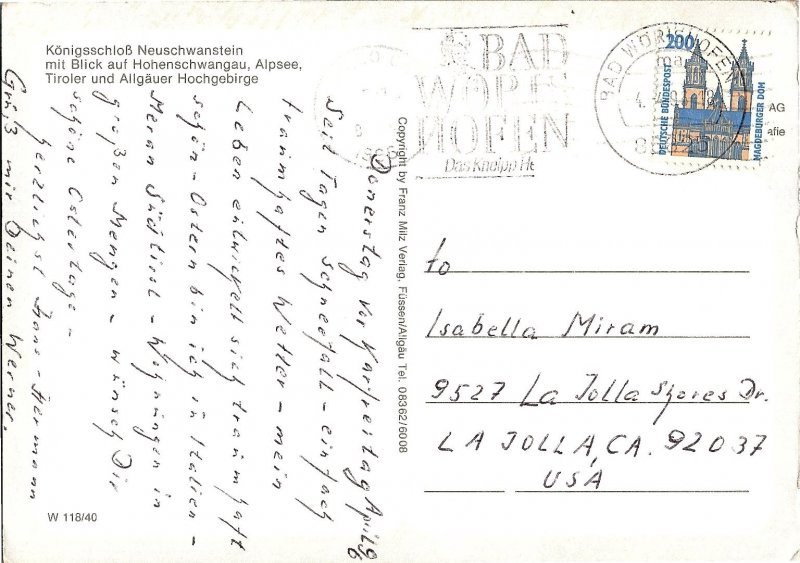 Königsschloß Neuschwanstein
mit Blick auf Hohenschwangau, Alpsee,
Tiroler und Allgäuer Hochgebirge
BAD
WÖRIS
HOFEN
Das Kneipp He
BAD WÖRISHOFEN
200
DEUTSCHE BUNDESPOST
MAGDEBURGER DOM
AG
afie
Donerstag vor Karfreitag April 96
Seit Tagen Schneefall - einfach
traumhaftes Wetter - mein
Leben entwickelt sich traumhaft
schön - Ostern bin ich in Italien -
Meran Südtirol - Wohnungen in
großen Mengen - wünsch Dir
schöne Ostertage -
herzlichst Hans-Hermann
Grüß mir Deinen Werner.
Copyright by Franz Milz Verlag, Füssen/Allgäu Tel. 08362/6008
to
Isabella Miram
9527 La Jolla Shores Dr.
LA JOLLA, CA. 92037
USA
W 118/40